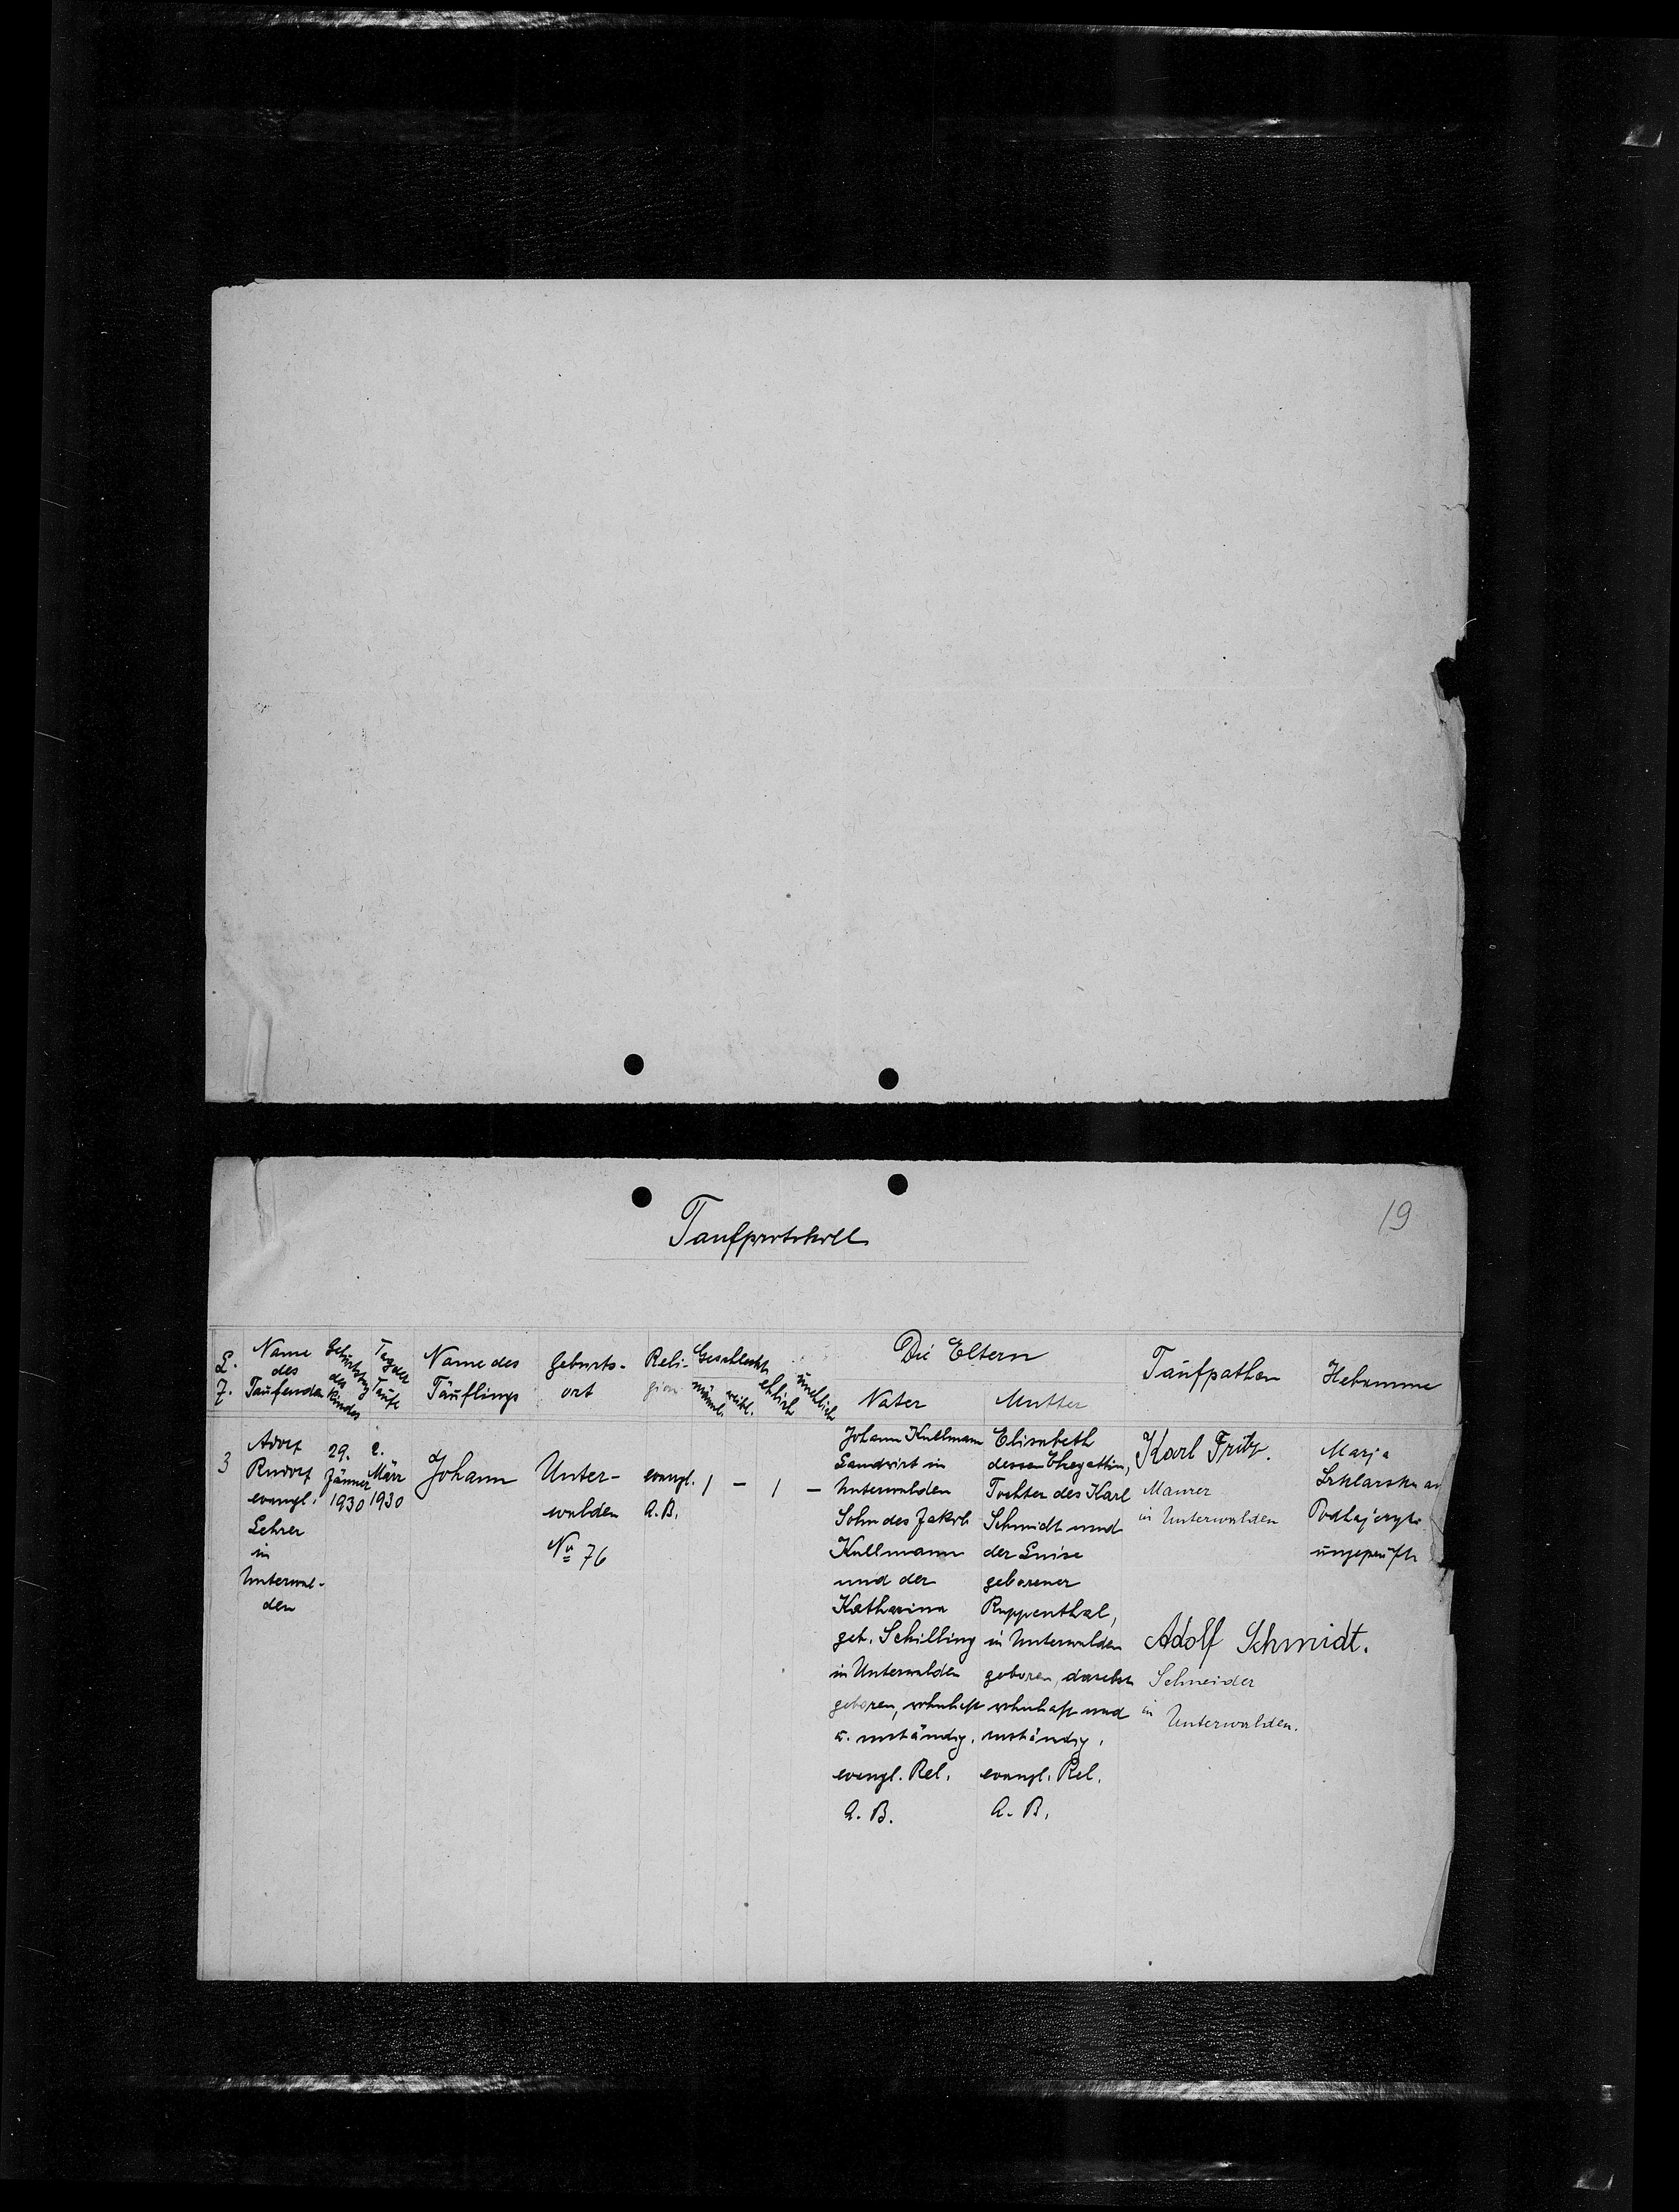 19
Taufprotokoll
L. Z.
Name des Taufenden
Geburtstag des Kindes
Tag der Taufe
Name des Täuflings
Geburts-
ort
Reli-
gion
Geschlecht
männl.
weibl.
ehlich
unehlich
Die Eltern
Vater
Mutter
Taufpathen
Hebamme
3
Adolf
Rudolf
evangl.
Lehrer
in
Unterwal-
den
29.
Jänner
1930
2.
März
1930
Johann
Unter-
walden
No 76
evangl.
A. B.
1
—
1
—
Johann Kullmann
Landwirt in
Unterwalden
Sohn des Jakob
Kullmann
und der
Katharina
geb. Schilling
in Unterwalden
geboren, wohnhaft
u. zuständig.
evangl. Rel.
A. B.
Elisabeth
dessen Ehegattin,
Tochter des Karl
Schmidt und
der Luise
geborener
Ruppenthal,
in Unterwalden
geboren, daselbst
wohnhaft und
zuständig.
evangl. Rel.
A. B.
Karl Fritz.
Maurer
in Unterwalden
Adolf Schmidt.
Schneider
in Unterwalden.
Marja
Szklarska
ungeprüft